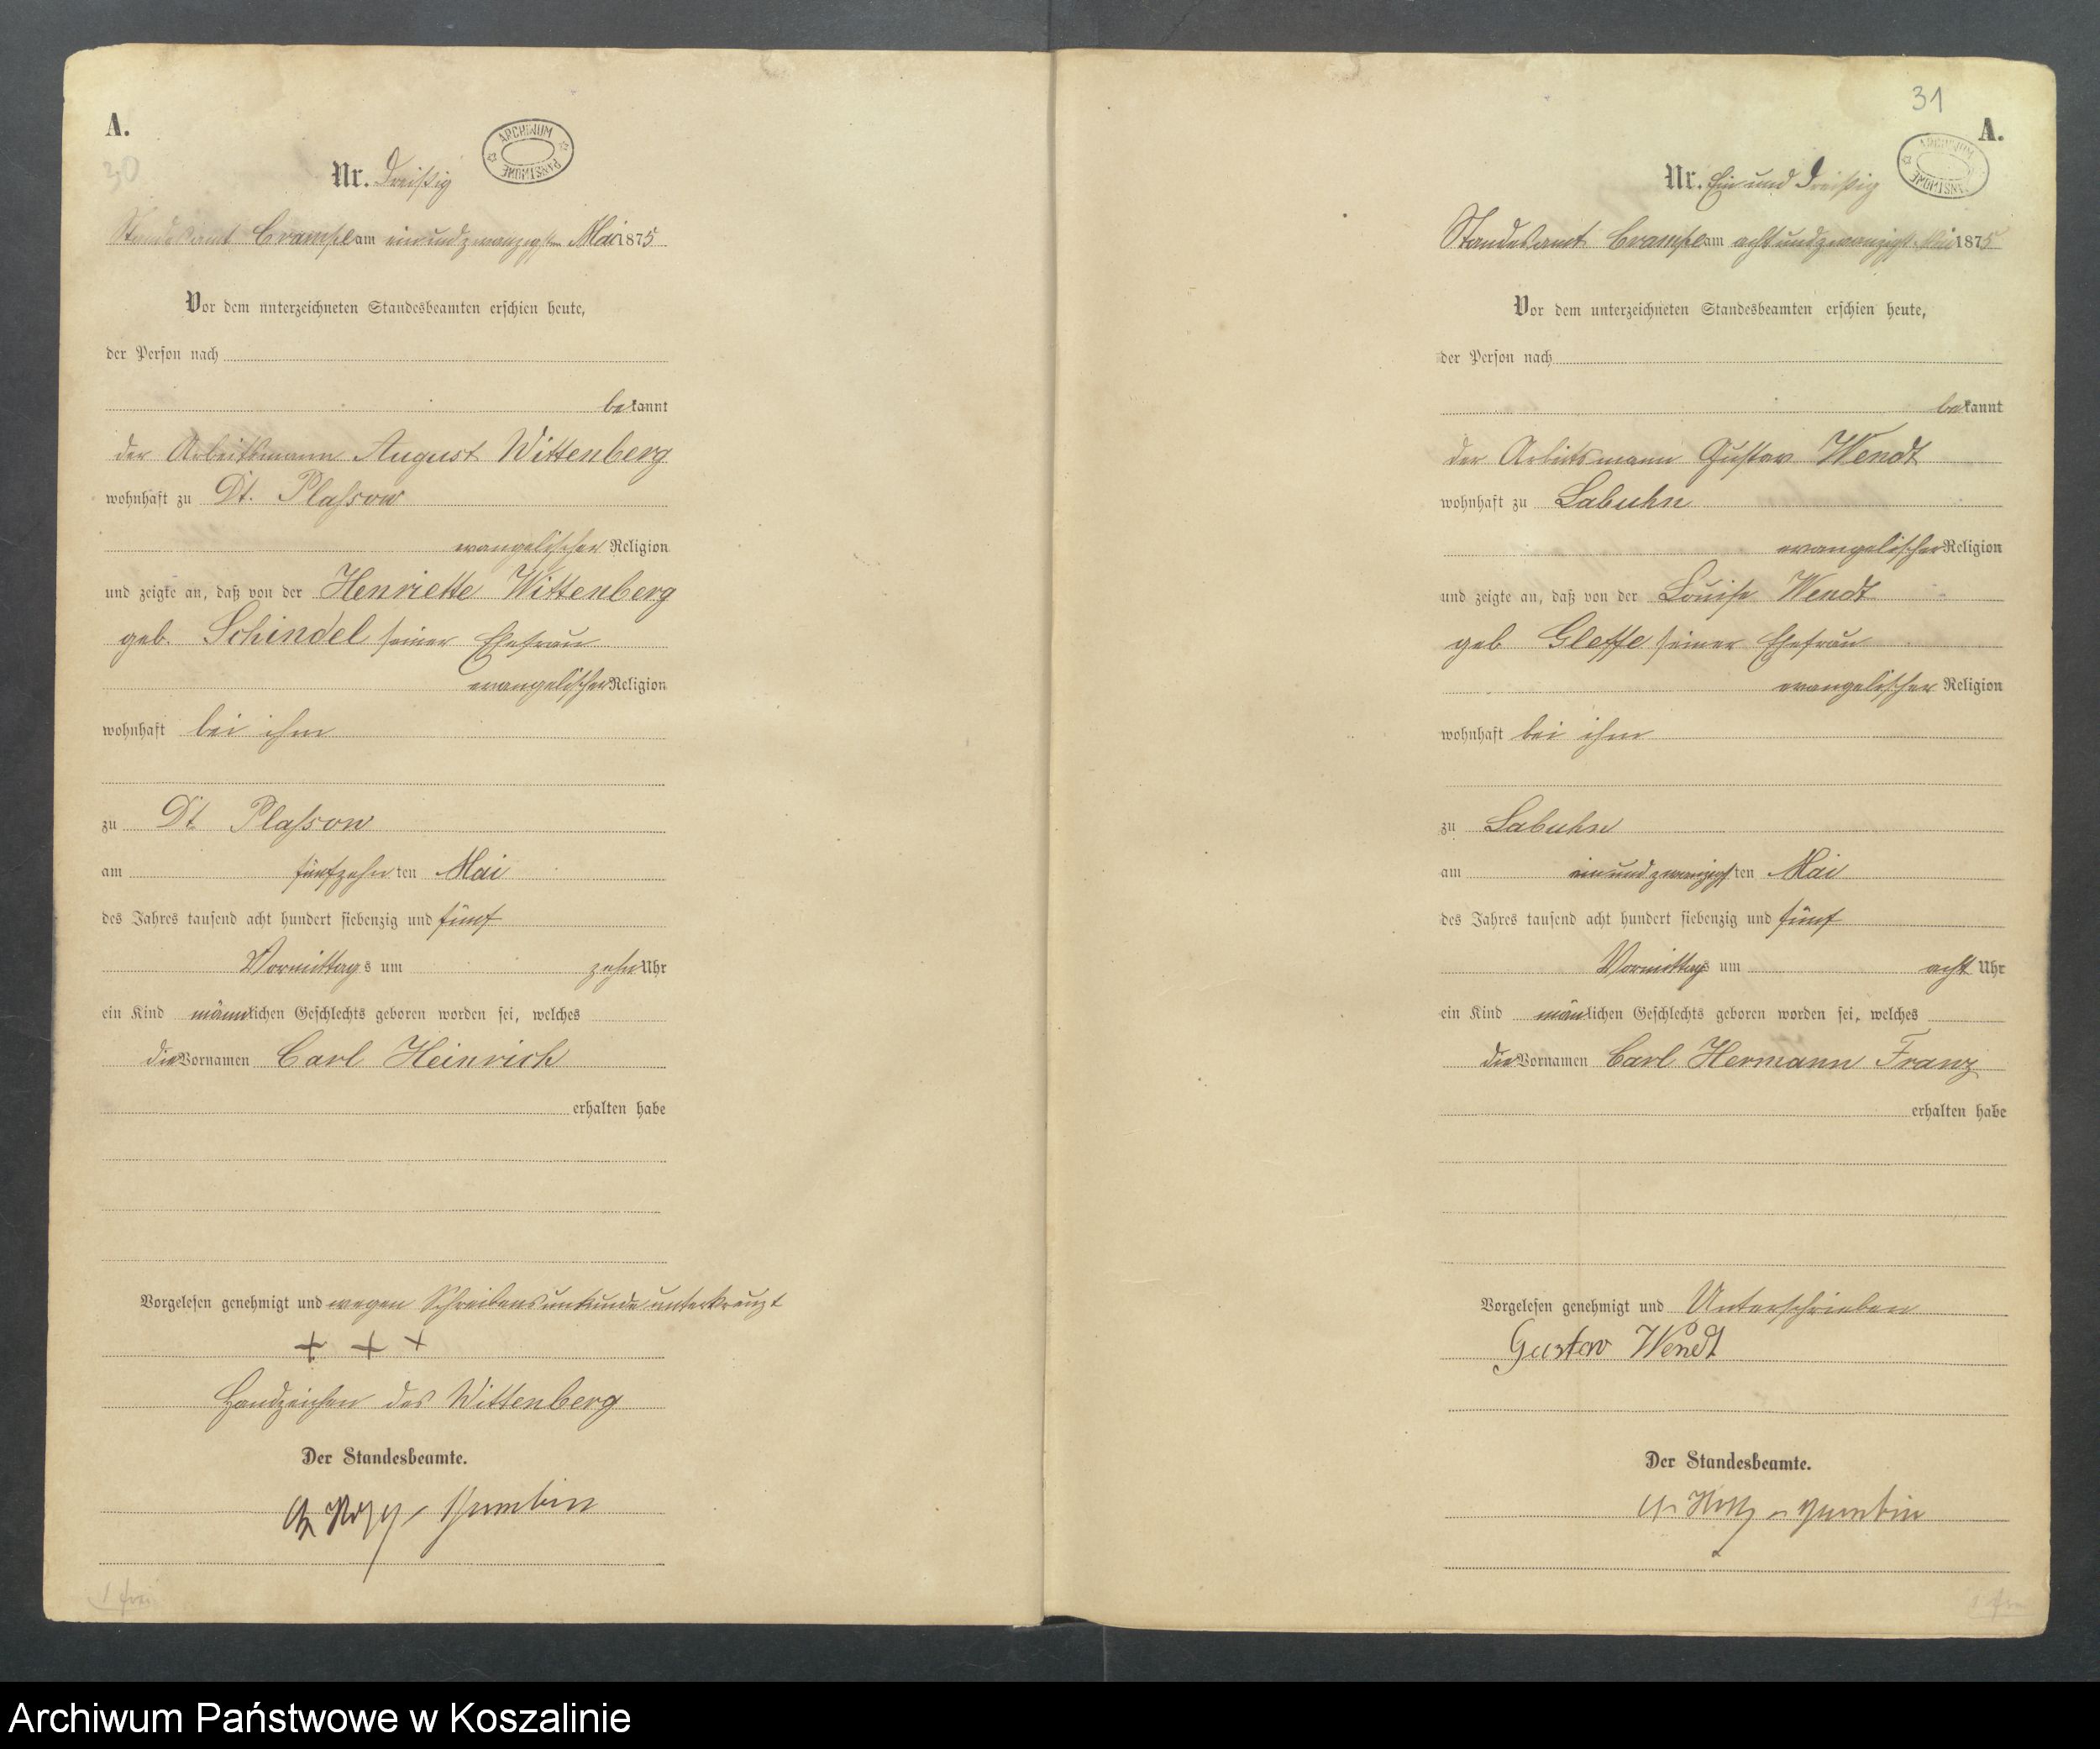 A.
30
Nr. Dreißig
ARCHIWUM PAŃSTWOWE
Standesamt Crampe am einundzwanzigsten Mai 1875
Vor dem unterzeichneten Standesbeamten erschien heute,
der Person nach
bekannt
der Arbeitsmann August Wittenberg
wohnhaft zu Dt. Plassow
evangelischer Religion
und zeigte an, daß von der Henriette Wittenberg
geb. Schindel seiner Ehefrau
evangelischer Religion
wohnhaft bei ihm
zu Dt Plassow
am fünfzehnten Mai
des Jahres tausend acht hundert siebenzig und fünf
Vormittags um zehn Uhr
ein Kind männlichen Geschlechts geboren worden sei, welches
die Vornamen Carl Heinrich
erhalten habe
Vorgelesen genehmigt und wegen Schreibensunkunde unterkreuzt
+ + +
Handzeichen des Wittenberg
Der Standesbeamte.
31
A.
Nr. Ein und Dreißig
ARCHIWUM PAŃSTWOWE
Standesamt Crampe am achtundzwanzigst Mai 1875
Vor dem unterzeichneten Standesbeamten erschien heute,
der Person nach
bekannt
der Arbeitsmann Gustav Wendt
wohnhaft zu Labuhn
evangelischer Religion
und zeigte an, daß von der Louise Wendt
geb Gleffe seiner Ehefrau
evangelischer Religion
wohnhaft bei ihm
zu Labuhn
am einundzwanzigsten Mai
des Jahres tausend acht hundert siebenzig und fünf
Vormittags um acht Uhr
ein Kind mänlichen Geschlechts geboren worden sei, welches
die Vornamen Carl Hermann Franz
erhalten habe
Vorgelesen genehmigt und Unterschrieben
Gustav Wendt
Der Standesbeamte.
Archiwum Państwowe w Koszalinie